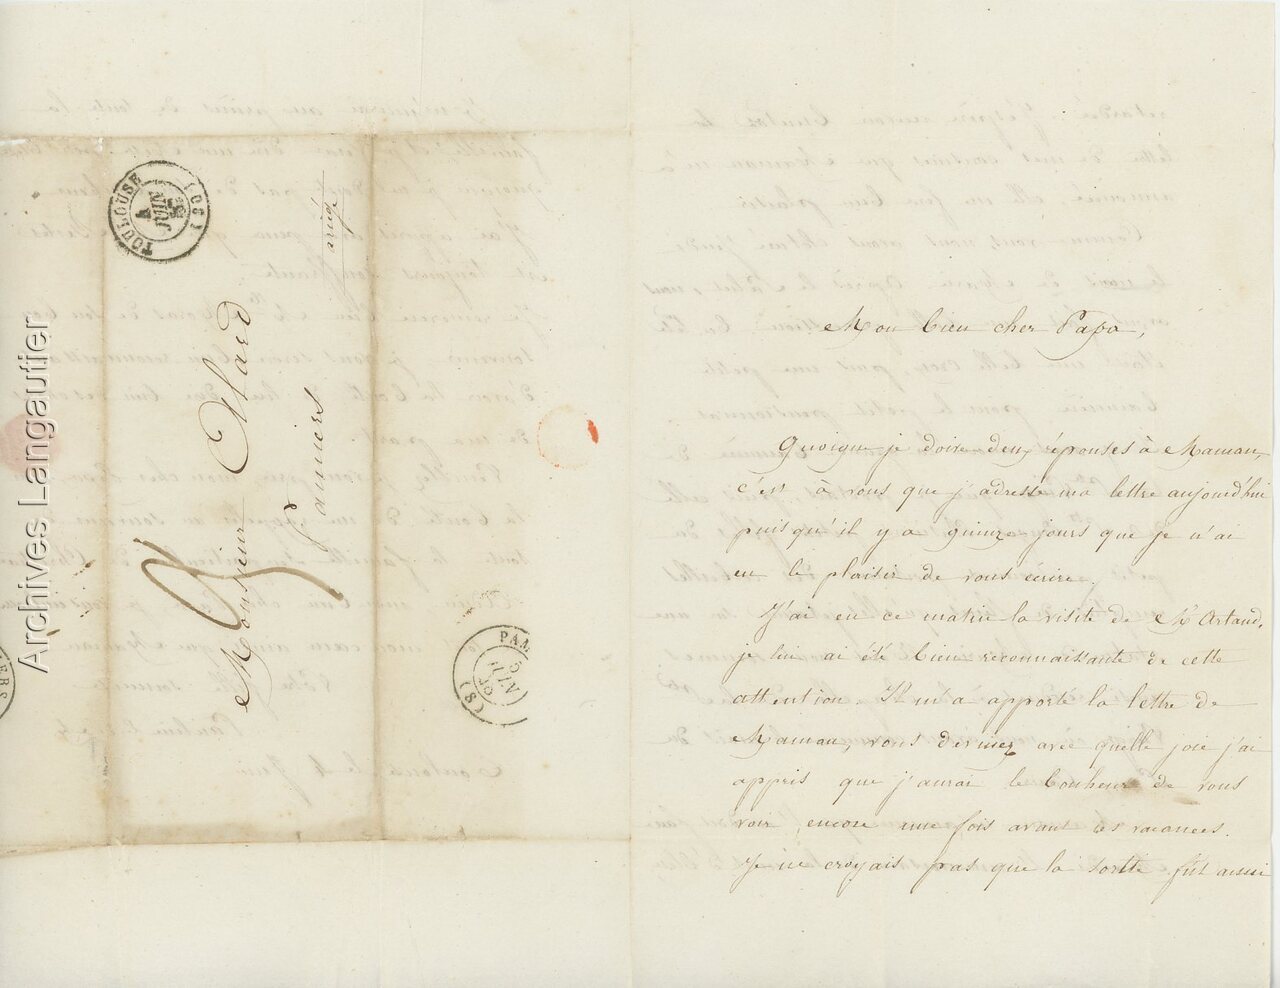 Archives Langautier
TOULOUSE
4
JUIN
(30)
négt
Monsieur Allard
Pamiers
PAM
5
JUIN
(8)
ERS
Mon bien cher Papa,
Quoique je doive deux réponses à Maman,
c'est à vous que j'adresse ma lettre aujourdhui
puisqu'il y a quinze jours que je n'ai
eu le plaisir de vous écrire.
J'ai eu ce matin la visite de Mr Artaud,
je lui ai été bien reconnaissante de cette
attention. Il m'a apporté la lettre de
Maman, vous devinez avec quelle joie j'ai
appris que j'aurai le bonheur de vous
voir encore une fois avant les vacances.
Je ne croyais pas que la sortie fût aussi